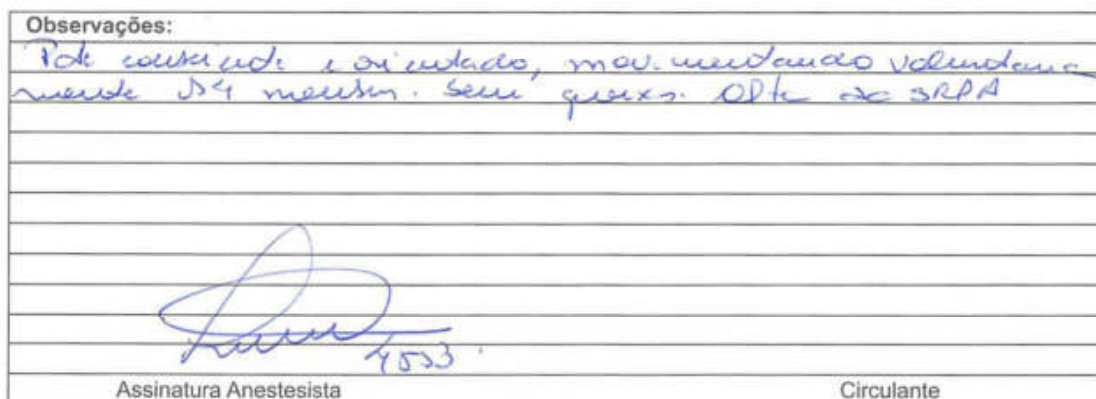 Observações:
Pcte consciente e orientado, movimentando voluntaria
mente os 4 membros. Sem queixas. Alta da SRPA
4553
Assinatura Anestesista Circulante